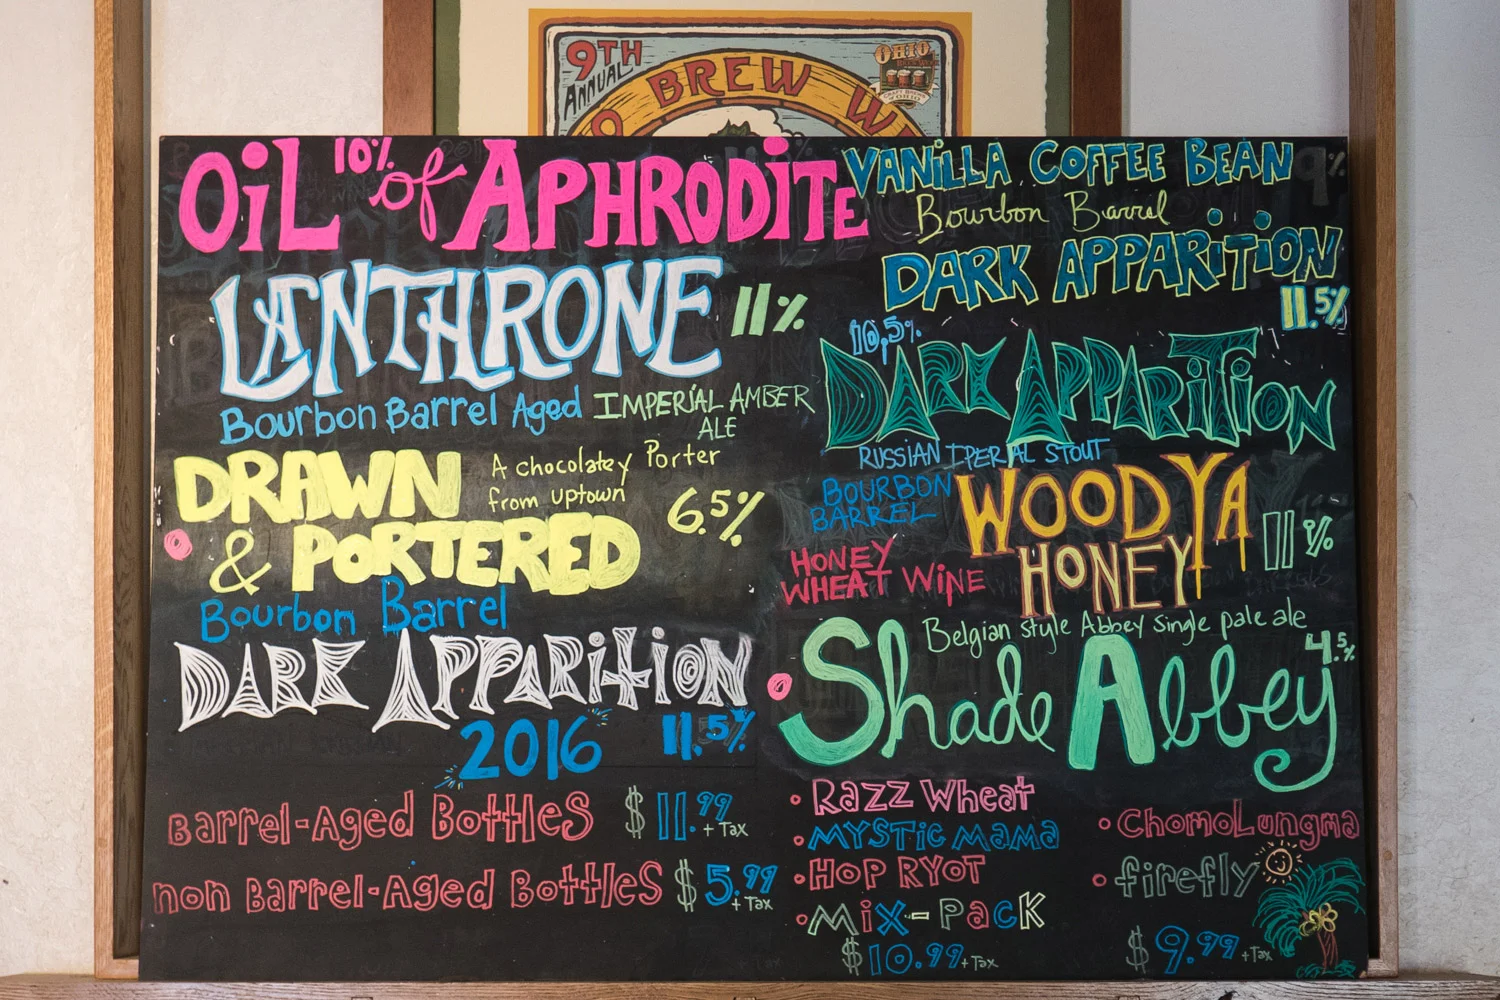 9TH
ANNUAL
BREW
OHIO
OiL 10% of APHRODiTE
LANTHRONE 11%
Bourbon Barrel Aged IMPERIAL AMBER
ALE
DRAWN
& PORTERED
A chocolatey Porter
from uptown
6.5%
Bourbon Barrel
DARK APPARiTiON
2016 11.5%
Barrel-Aged Bottles $11.99 + Tax
non Barrel-Aged Bottles $5.99 + Tax
VANiLLA COFFEE BEAN
Bourbon Barrel
DARK APPARiTiON
11.5%
10.5%
DARK APPARiTiON
RUSSIAN IPERIAL STOUT
BOURBON
BARREL
WOODYA
HONEY
11%
HONEY
WHEAT WiNE
Belgian style Abbey single pale ale
4.5%
Shade Abbey
• Razz Wheat
• MYSTiC MAMA
• HOP RYOT
• Mix-Pack
$10.99 + Tax
• ChomoLungma
• firefly
$9.99 + Tax